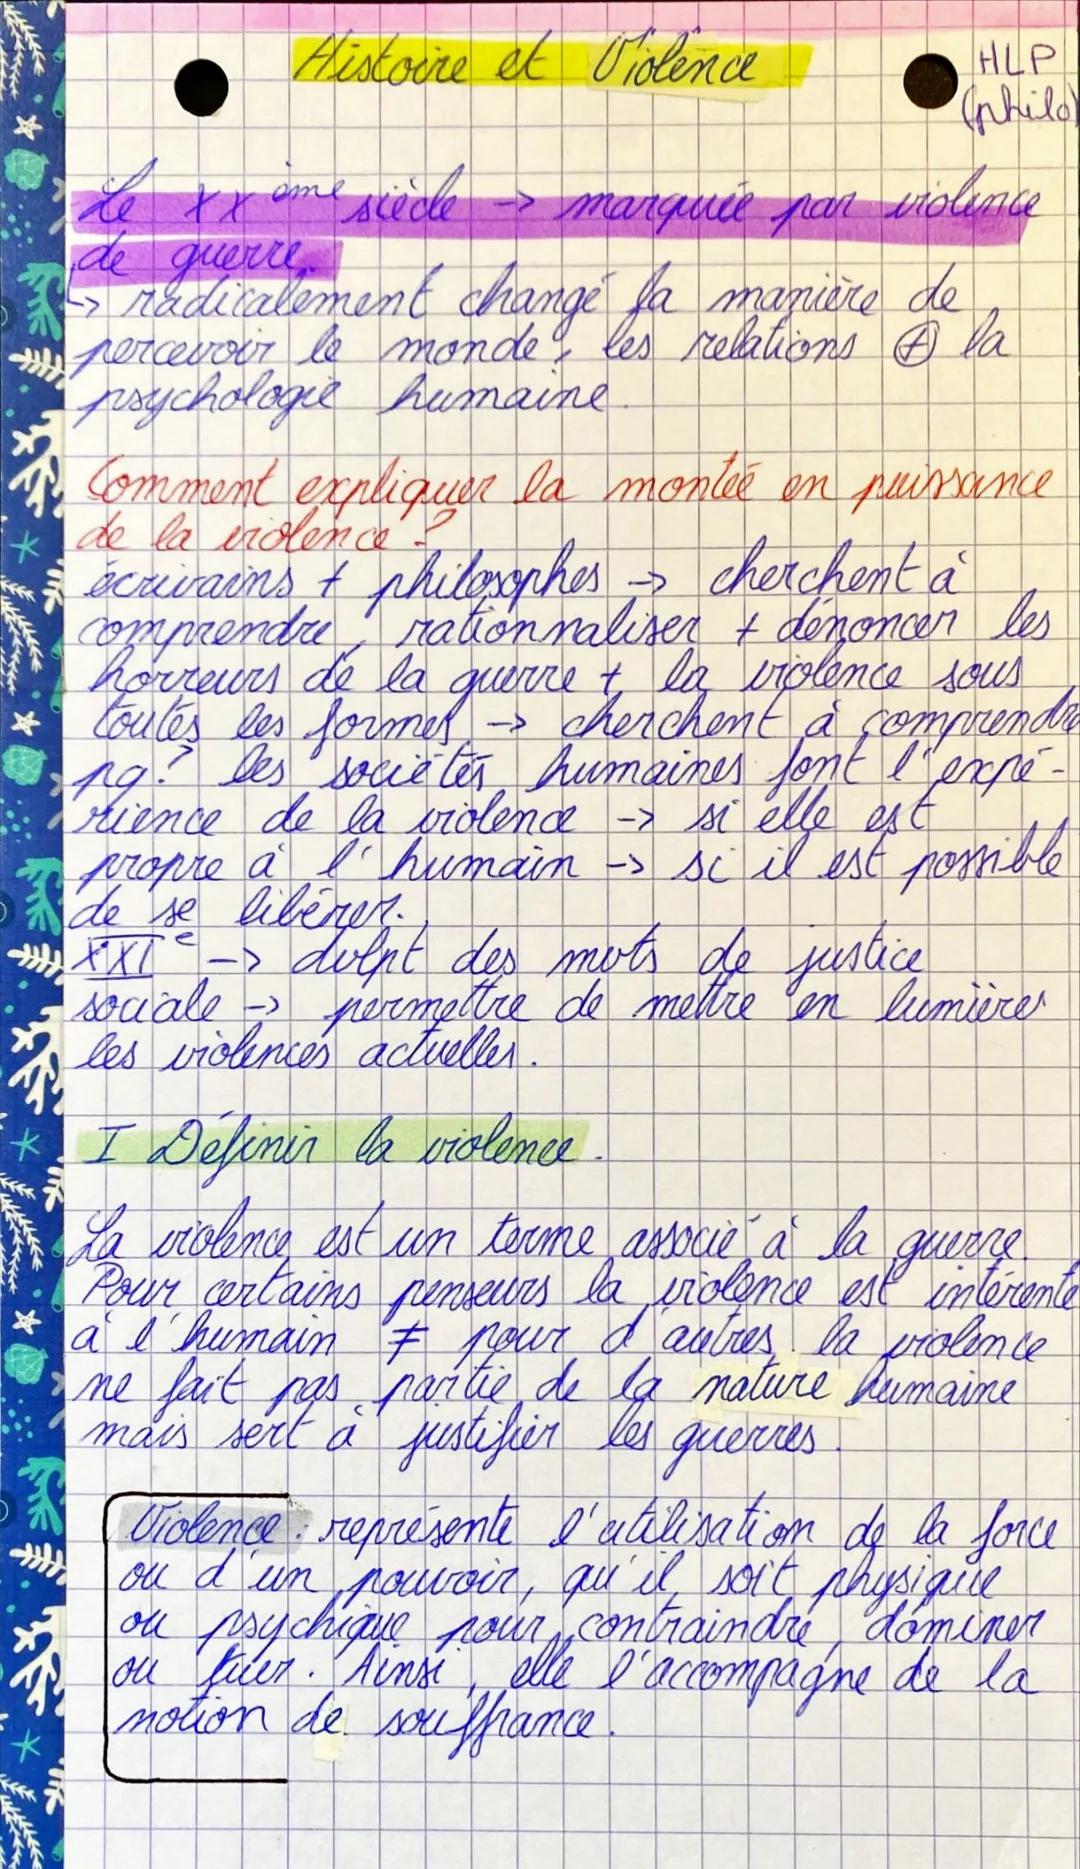 Histoire et Violence
HLP
(philo)
Le XXème siècle -> marquée par violence
de guerre.
↳ radicalement changé la manière de
percevoir le monde, les relations ⊕ la
psychologie humaine.
Comment expliquer la montée en puissance
de la violence ?
écrivains + philosophes -> cherchent à
comprendre, rationnaliser + dénoncer les
horreurs de la guerre + la violence sous
toutes les formes -> cherchent à comprendre
pq? les sociétés humaines font l'expé-
rience de la violence -> si elle est
propre à l'humain -> si il est possible
de se libérer.
XXIe -> dvlpt des mots de justice
sociale -> permettre de mettre en lumières
les violences actuelles.
I Définir la violence.
La violence est un terme associé à la guerre.
Pour certains penseurs la violence est intérente
à l'humain ≠ pour d'autres la violence
ne fait pas partie de la nature humaine
mais sert à justifier les guerres.
Violence : représente l'utilisation de la force
ou d'un pouvoir, qu'il soit physique
ou psychique pour contraindre, dominer
ou tuer. Ainsi, elle l'accompagne de la
notion de souffrance.